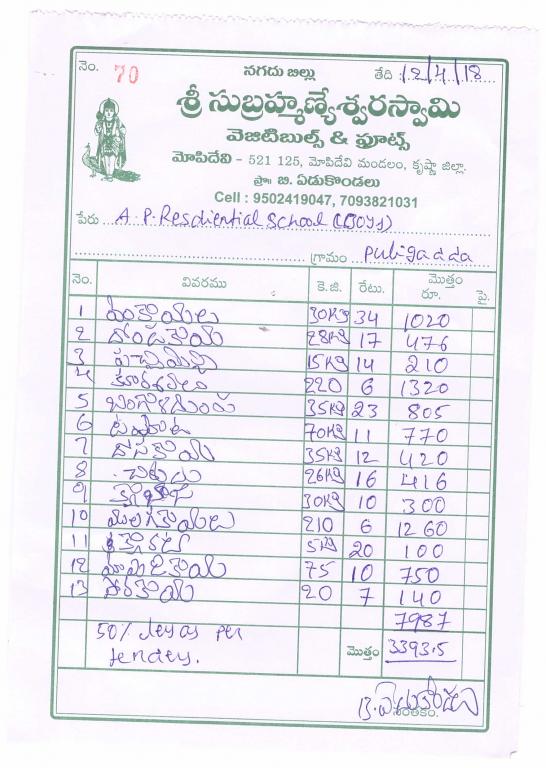 నెం. 70 నగదు బిల్లు తేది : 12/4/18
శ్రీ సుబ్రహ్మణ్యేశ్వరస్వామి
వెజిటిబుల్స్ & ఫ్రూట్స్
మోపిదేవి - 521 125, మోపిదేవి మండలం, కృష్ణా జిల్లా.
ప్రొ॥ బి. ఏడుకొండలు
Cell : 9502419047, 7093821031
పేరు A.P. Resdiential School (BOYS)
గ్రామం Puligadda
నెం. వివరము కె.జి. రేటు. మొత్తం రూ. పై.
1 వంకాయలు 30KG 34 1020
2 దొండకాయ 28KG 17 476
3 పచ్చిమిర్చి 15KG 14 210
4 220 6 1320
5 బంగాళదుంప 35KG 23 805
6 టమాటా 70KG 11 770
7 దోసకాయ 35KG 12 420
8 26KG 16 416
9 30KG 10 300
10 ములగకాయలు 210 6 1260
11 5KG 20 100
12 మామిడికాయ 75 10 750
13 సోరకాయ 20 7 140
7987
50% leyas per
tendey.
మొత్తం 3393.5
B. ఏడుకొండలు
సంతకం.